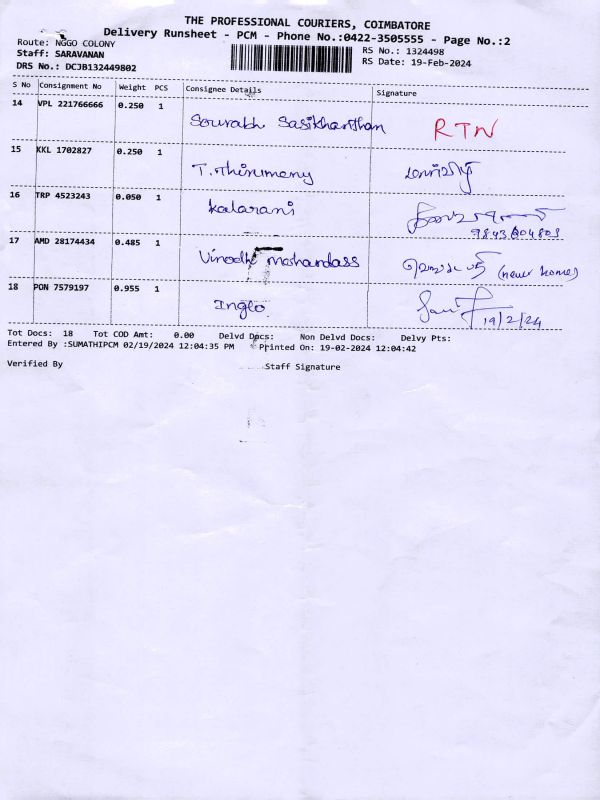 THE PROFESSIONAL COURIERS, COIMBATORE
Delivery Runsheet - PCM - Phone No.:0422-3505555 - Page No.:2
Route: NGGO COLONY
RS No.: 1324498
Staff: SARAVANAN
RS Date: 19-Feb-2024
DRS No.: DCJB132449802
S No Consignment No Weight PCS Consignee Details Signature
14 VPL 221766666 0.250 1 Sourabh Sasikhanthan RTN
15 KKL 1702827 0.250 1 T.Thirumeny
16 TRP 4523243 0.050 1 Kalarani
17 AMD 28174434 0.485 1 Vinodh mohandass
18 PON 7579197 0.955 1 Inglo 19/2/24
Tot Docs: 18 Tot COD Amt: 0.00 Delvd Docs: Non Delvd Docs: Delvy Pts:
Entered By :SUMATHIPCM 02/19/2024 12:04:35 PM Printed On: 19-02-2024 12:04:42
Verified By Staff Signature